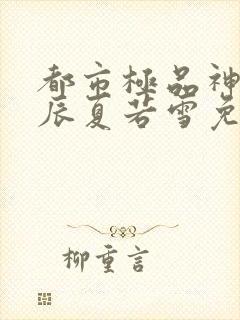 都市極品神
辰夏若雪免
柳重言